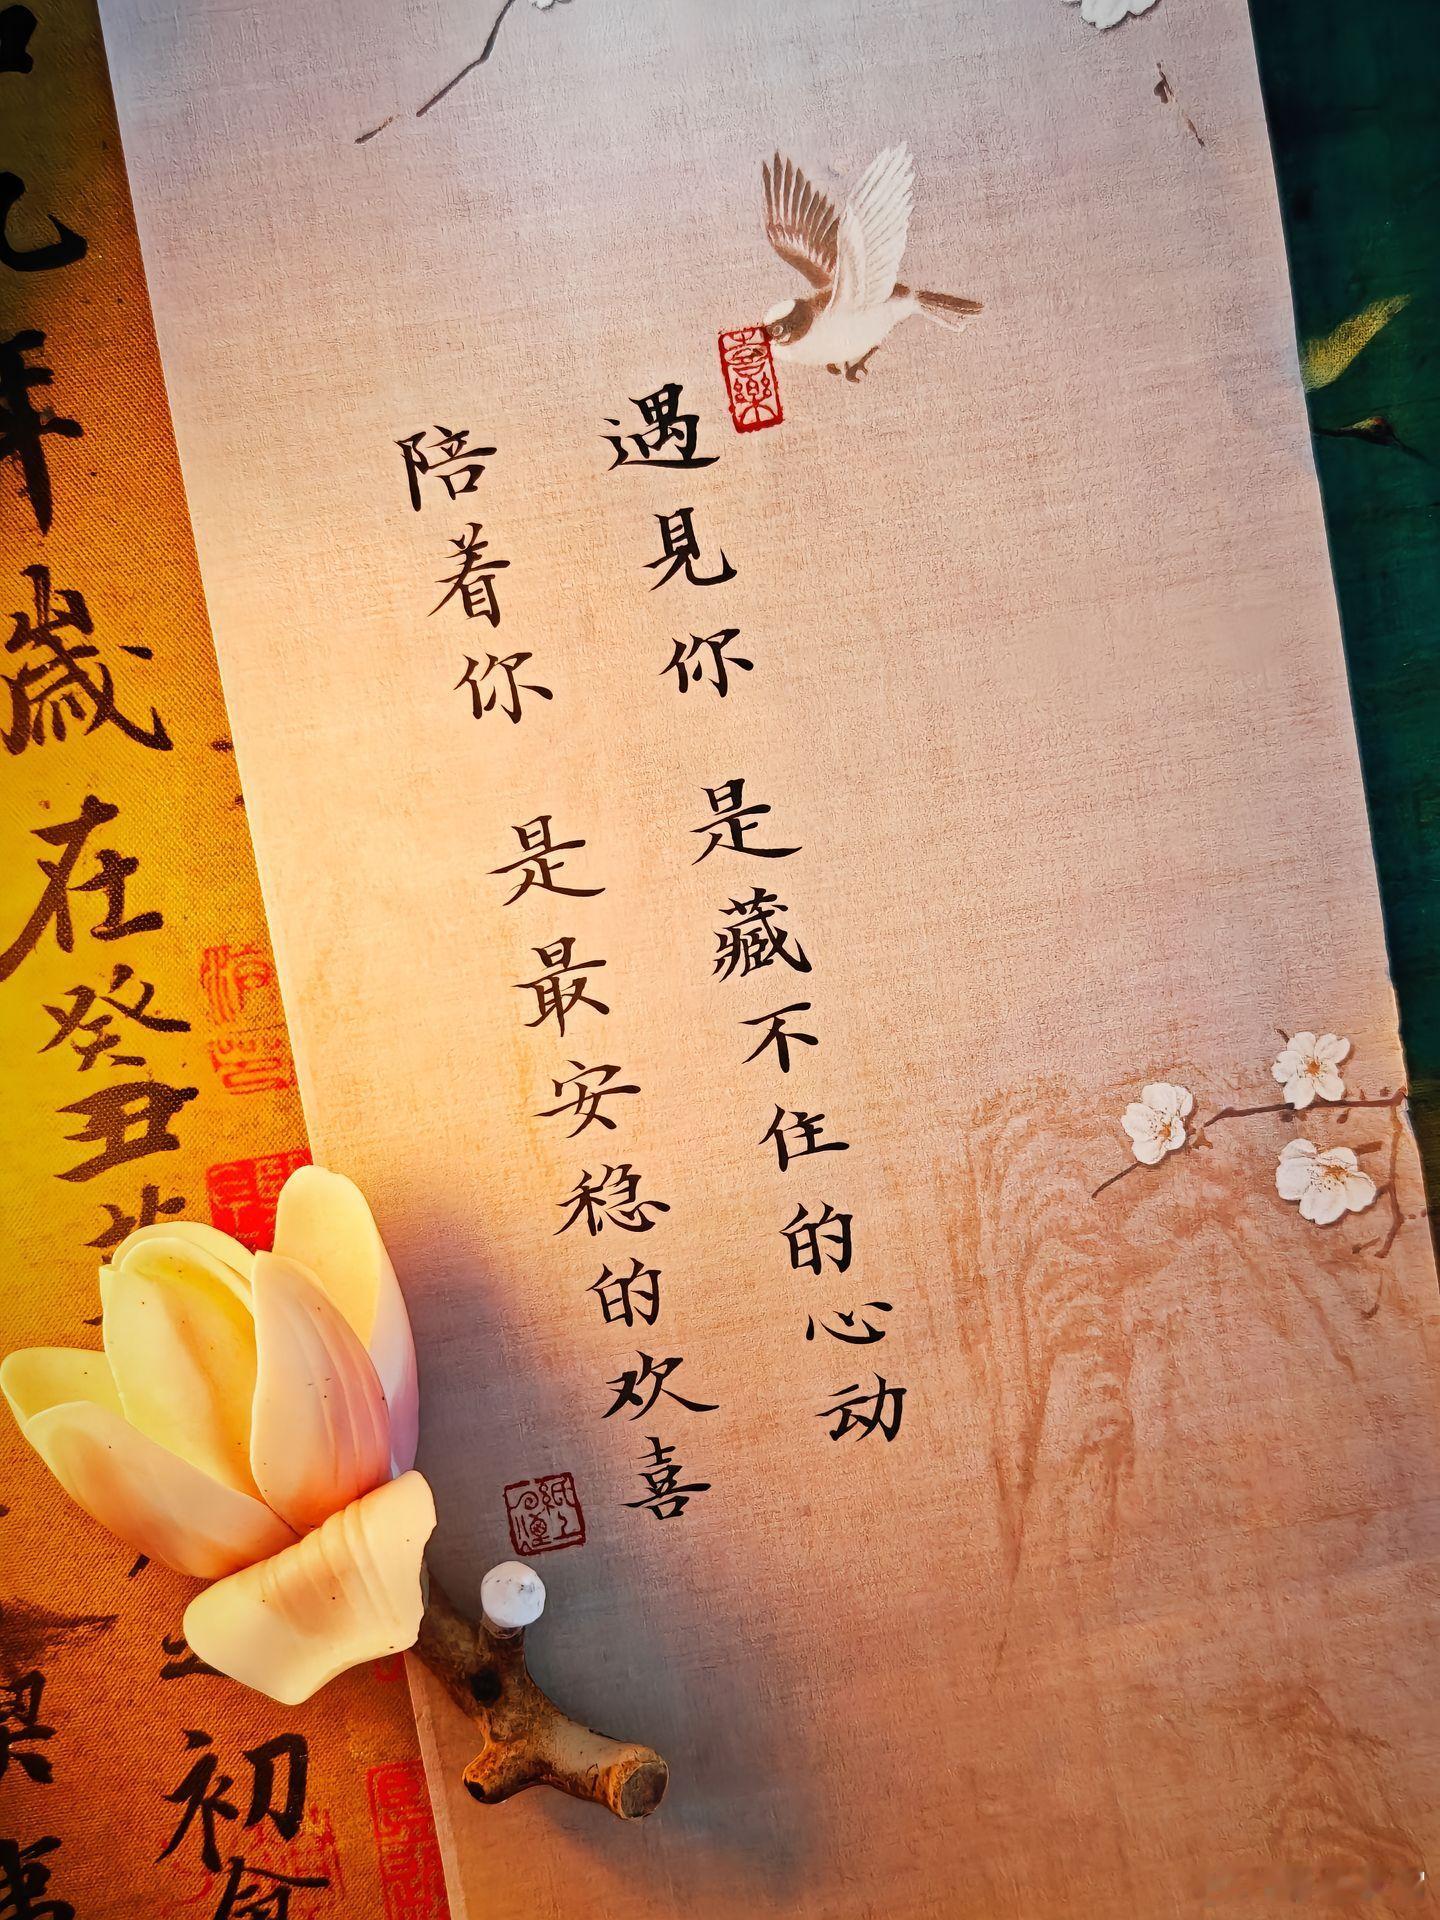 遇見你 是藏不住的心动
陪着你 是最安稳的欢喜
喜樂
年歲在癸丑
初會